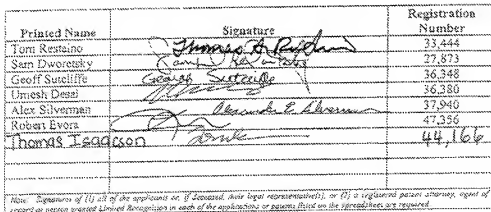 Printed Name Signature Registration Number
Tom Restaino Thomas A. Restaino 33,444
Sam Dworetsky 27,873
Geoff Sutcliffe Geoffrey Sutcliffe 36,348
Umesh Desai 36,380
Alex Silverman Alexander E. Silverman 37,940
Robert Evora 47,356
Thomas Isaacson 44,166
Note: Signatures of (1) all of the applicants or, if deceased, their legal representative(s), or (2) a registered patent attorney, agent of
record or person granted Limited Recognition in each of the applications or patents listed on the spreadsheet are required